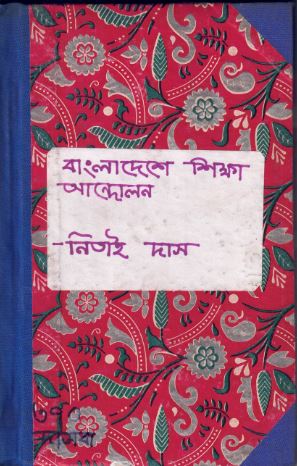 বাংলাদেশে শিক্ষা
আন্দোলন
নিতাই দাস